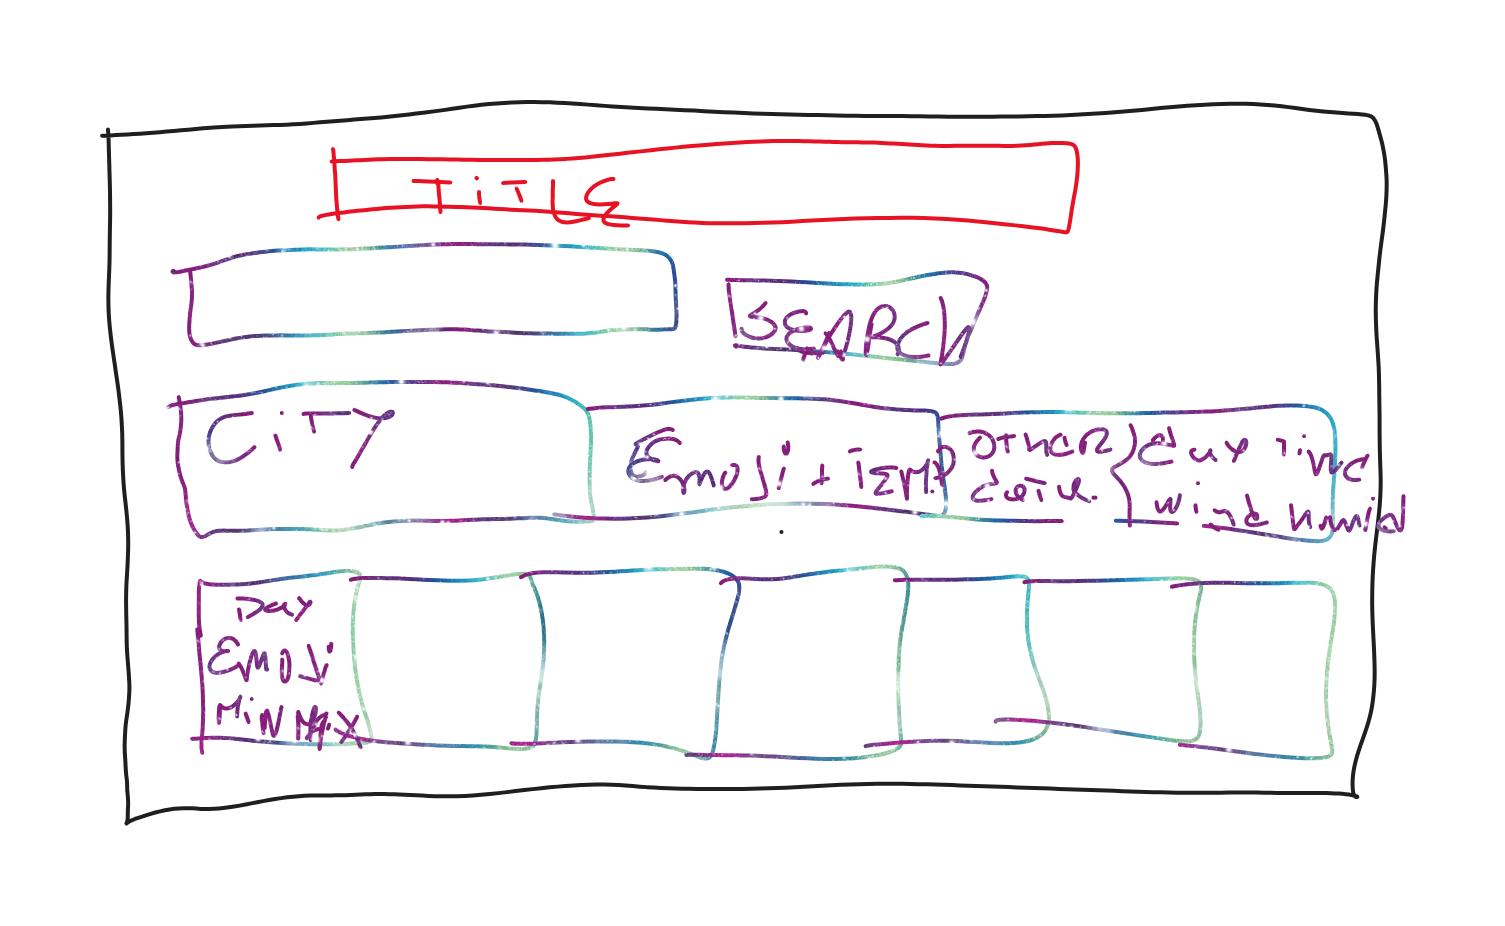 TiTLE
SEARCH
CiTY
Emoji + TEMP
OTHER data } day time
wind humid
Day
EMOJi
MiN MAX